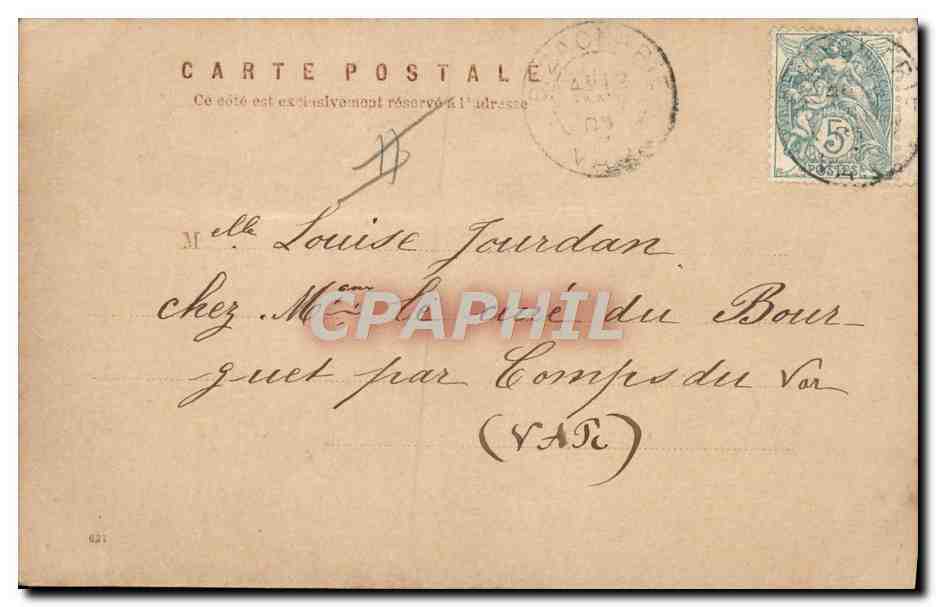 CARTE POSTALE
Ce côté est exclusivement réservé à l'adresse
5c
POSTES
VAR
Melle Louise Jourdan
chez Mr le curé du Bour-
guet par Comps du Var
(VAR)
CPAPHIL
627